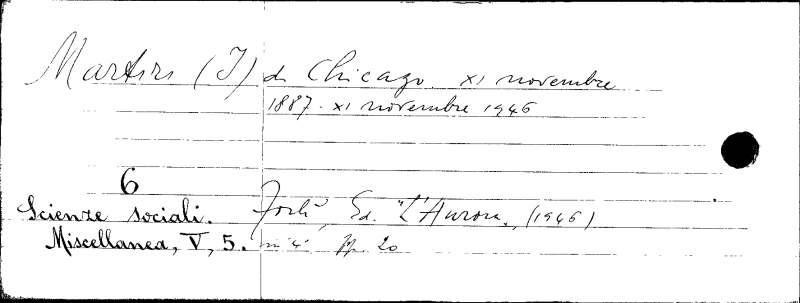 Martiri (I) di Chicago. XI novembre
1887. XI novembre 1946
6
Scienze sociali. Forlì, Ed. "L'Aurora", (1946)
Miscellanea, V, 5. in 4° pp. 20